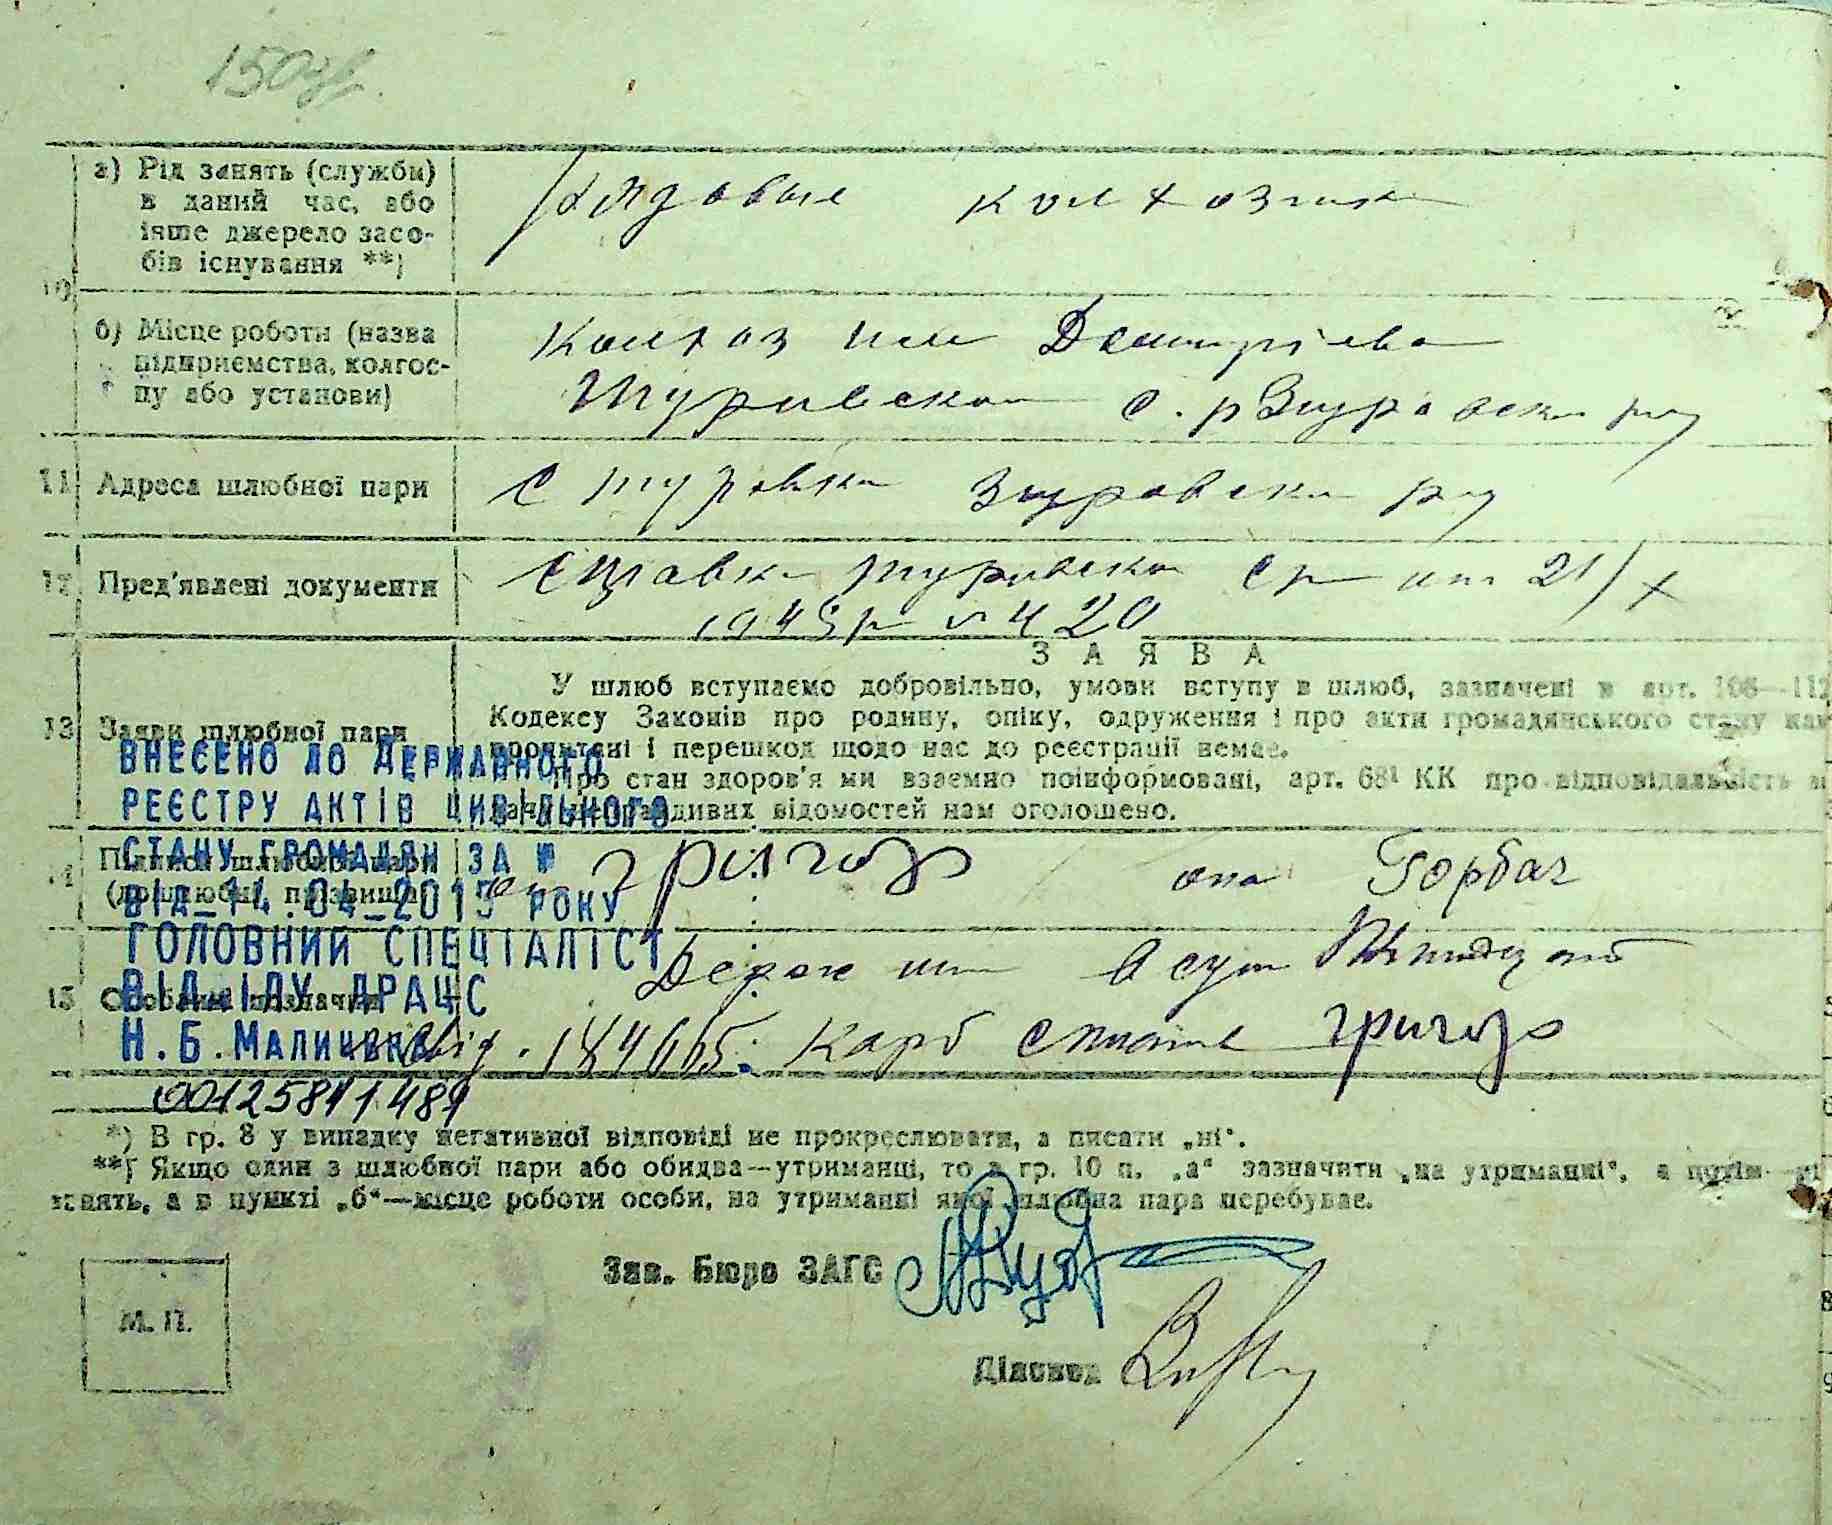 150
а) Рід занять (служби) в даний час, або інше джерело засобів існування **)
Рядовые колхозники
10
б) Місце роботи (назва підприємства, колгоспу або установи)
Колхоз им
Туровской с. р Згуровски р-у
11 Адреса шлюбної пари
с Туровка Згуровски р-у
12 Пред'явлені документи
Справка Туровской ср от 21/X
1945 р N 420
13 Заяви шлюбної пари
ЗАЯВА
У шлюб вступаємо добровільно, умови вступу в шлюб, зазначені в арт. 106—112
Кодексу Законів про родину, опіку, одруження і про акти громадянського стану нам
прочитані і перешкод щодо нас до реєстрації немає.
Про стан здоров'я ми взаємно поінформовані, арт. 68¹ КК про відповідальність
неправдивих відомостей нам оголошено.
14 Підписи шлюбної пари
(дошлюбні прізвища)
она Горбач
15 Особливі позначки
Держ
карб
ВНЕСЕНО ДО ДЕРЖАВНОГО
РЕЄСТРУ АКТІВ ЦИВІЛЬНОГО
СТАНУ ГРОМАДЯН ЗА №
ВІД_14.04_201 РОКУ
ГОЛОВНИЙ СПЕЦІАЛІСТ
ВІДДІЛУ ДРАЦС
Н.Б.
00125841489
*) В гр. 8 у випадку негативної відповіді не прокреслювати, а писати „ні".
**) Якщо один з шлюбної пари або обидва—утриманці, то в гр. 10 п. „а" зазначити „на утриманні", а потім
занять, а в пункті „б"—місце роботи особи, на утриманні якої шлюбна пара перебуває.
Зав. Бюро ЗАГС
М. П.
Діловод